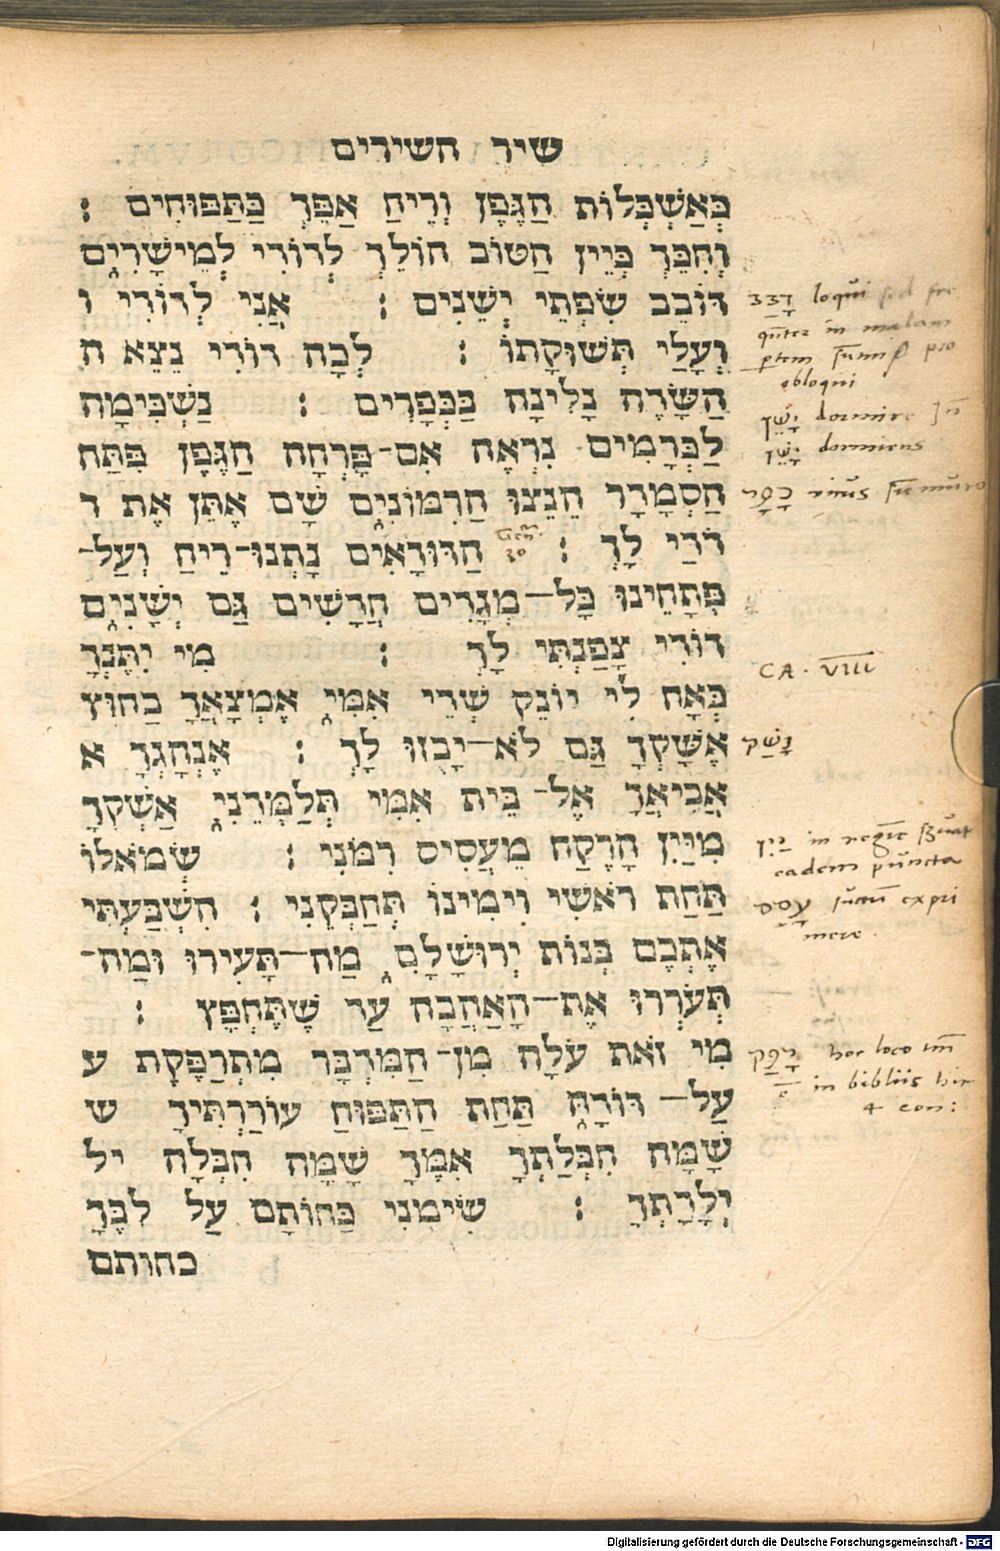 שיר השירים
כְּאֶשְׁכְּלוֹת הַגֶּפֶן וְרֵיחַ אַפֵּךְ כַּתַּפּוּחִים :
וְחִכֵּךְ כְּיֵין הַטּוֹב הוֹלֵךְ לְדוֹדִי לְמֵישָׁרִים
דּוֹבֵב שִׂפְתֵי יְשֵׁנִים : אֲנִי לְדוֹדִי ו
וְעָלַי תְּשׁוּקָתוֹ : לְכָה דוֹדִי נֵצֵא ה
הַשָּׂדֶה נָלִינָה בַּכְּפָרִים : נַשְׁכִּימָה
לַכְּרָמִים נִרְאֶה אִם־פָּרְחָה הַגֶּפֶן פִּתַּח
הַסְמָדַר הֵנֵצוּ הָרִמּוֹנִים שָׁם אֶתֵּן אֶת ד
דֹּדַי לָךְ : הַדּוּדָאִים נָתְנוּ־רֵיחַ וְעַל־
פְּתָחֵינוּ כָּל־מְגָדִים חֲדָשִׁים גַּם יְשָׁנִים
דּוֹדִי צָפַנְתִּי לָךְ : מִי יִתֶּנְךָ
כְּאָח לִי יוֹנֵק שְׁדֵי אִמִּי אֶמְצָאֲךָ בַחוּץ
אֶשָּׁקְךָ גַּם לֹא־יָבֻזוּ לָךְ : אֶנְהָגְךָ א
אֲבִיאֲךָ אֶל־בֵּית אִמִּי תְּלַמְּדֵנִי אַשְׁקְךָ
מִיַּיִן הָרֶקַח מֵעֲסִיס רִמֹּנִי : שְׂמֹאלוֹ
תַּחַת רֹאשִׁי וִימִינוֹ תְּחַבְּקֵנִי : הִשְׁבַּעְתִּי
אֶתְכֶם בְּנוֹת יְרוּשָׁלִָם מַה־תָּעִירוּ וּמַה־
תְּעֹרְרוּ אֶת־הָאַהֲבָה עַד שֶׁתֶּחְפָּץ :
מִי זֹאת עֹלָה מִן־הַמִּדְבָּר מִתְרַפֶּקֶת ע
עַל־דּוֹדָהּ תַּחַת הַתַּפּוּחַ עוֹרַרְתִּיךָ ש
שָׁמָּה חִבְּלַתְךָ אִמֶּךָ שָׁמָּה חִבְּלָה יל
יְלָדַתְךָ : שִׂימֵנִי כַּחוֹתָם עַל לִבֶּךָ
כחותם
דָבַב loqui sed fre
in malam
pro
obloqui
יָשֵׁן dormire
יָשֵׁן dormiens
כָפָר
30
CA. VIII
נָשַׁק
יַיִן in
eadem puncta
עסס expri
mere.
רָפַק hoc loco
in bibliis
Digitalisierung gefördert durch die Deutsche Forschungsgemeinschaft - DFG